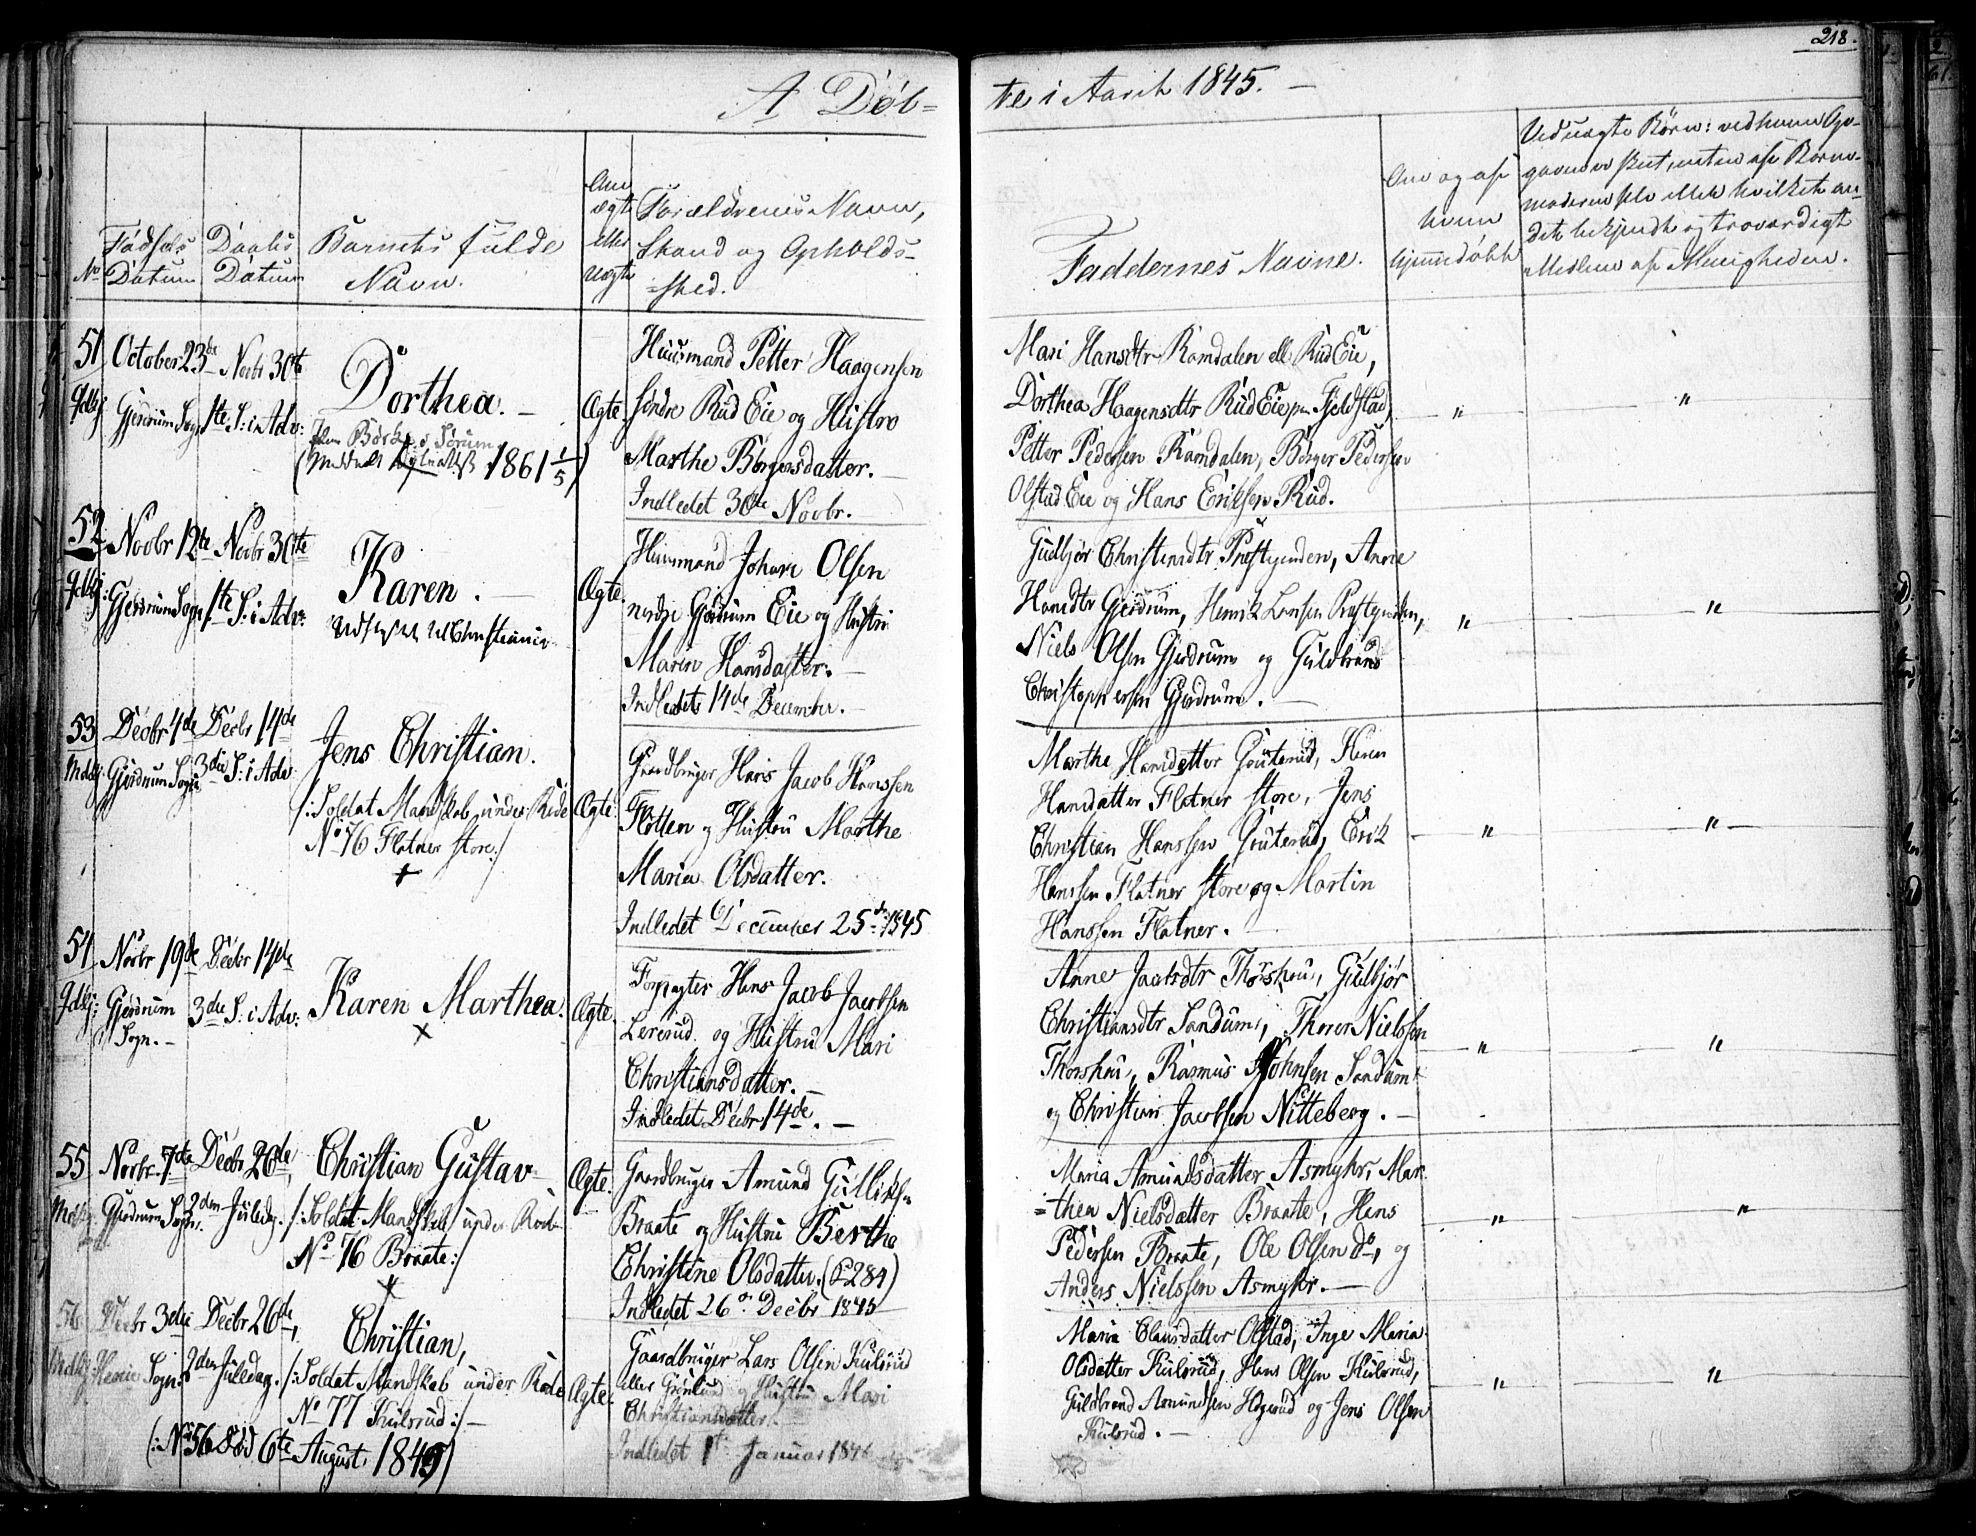 218.
A Døb-
te i Aaret 1845. —
No
Fødsels Datum
Daabs Datum
Barnets fulde Navn.
Om ægte eller uægte
Forældrenes Navn, Stand og Opholds-
=sted.
Faddernes Navne.
Om og af hvem hjemmedøbt
51 October 23de Novbr 30te
Dorthea. —
Gjerdrum Sogn 1ste S: i Adv:
1861 1/5)
Ægte.
Huusmand Petter Haagensen
søndre Rud Eie og Hustro
Marthe Børgersdatter. —
Indledet 30te Novbr.
Mari Hansdtr Ramdalen ell. Rud Eie,
Dorthea Haagensdtr Rud Eie Fjeldstad,
Petter Pedersen Ramdalen, Børger Pedersen
Olstad Eie og Hans Eriksen Rud.
52 Novbr 12te Novbr 30te
Karen. —
Gjerdrum Sogn 1ste S: i Adv:
Udflyttet til Christiania
Ægte
Huusmand Johan Olsen
nedre Gjerdrum Eie og Hustru
Maren Hansdatter. —
Indledet 14de December. —
Gudbjør Christensdtr Præstgaarden, Anne
Hansdtr Gjerdrum, Henrik Larsen Præstgaarden,
Niels Olsen Gjerdrum og Guldbrand
Christophersen Gjerdrum. —
53 Decbr 4de Decbr 14de
Jens Christian.
Mdkj: Gjerdrum Sogn 3die S: i Adv:
/: Soldat Mandskab under Rode
No 76 Flatner store :/
+
Ægte
Gaardbruger Hans Jacob Hanssen
Flotten og Hustru Marthe
Maria Olsdatter.
Indledet December 25de 1845
Marthe Hansdatter Gruterud, Karen
Hansdatter Flatner store, Jens
Christian Hanssen Gruterud, Erik
Hanssen Flatner store og Martin
Hanssen Flatner.
54 Novbr 19de Decbr 14de
Karen Marthea.
x
Gjerdrum Sogn. — 3die S: i Adv:
Ægte.
Forpagter Hans Jacob Jacobsen
Lererud og Hustru Mari
Christiansdatter. —
Indledet Decbr 14de. —
Anne Jacobsdtr Thorshou, Gulbjør
Christiansdtr Sandum, Thorer Nielssen
Thorshou, Rasmus Johnsen Sandum
og Christian Jacobsen Nitteberg. —
55 Novbr 7de Decbr 26de,
Christian Gustav
Mdkj: Gjerdrum Sogn. 2den Juledag.
/: Soldat Mandskab under Rode
No 76 Braate :/
Ægte.
Gaardbruger Amund Gulliksen
Braate og Hustru Berthe
Christine Olsdatter. (C 284)
Indledet 26de Decbr 1845
Maria Amundsdatter Asmyhr, Mar-
=thea Nielsdatter Braate, Hans
Pedersen Braate, Ole Olsen do, og
Anders Nielssen Asmyhr. —
56 Decbr 3die Decbr 26de,
Christian,
Mdkj: Sogn. 2den Juledag.
/: Soldat Mandskab under Rode
No 77 Kulsrud :/ —
(: No 56 død 6te August 1845)
Ægte.
Gaardbruger Lars Olsen Kulsrud
eller Grønlund og Hustru Mari
Christiansdatter.
Indledet 1st Januar 1846
Maria Clausdatter Olstad, Inge Maria
Olsdatter Kulsrud, Hans Olsen Kulsrud,
Guldbrand Amundsen Hogsrud og Jens Olsen
Kulsrud. —